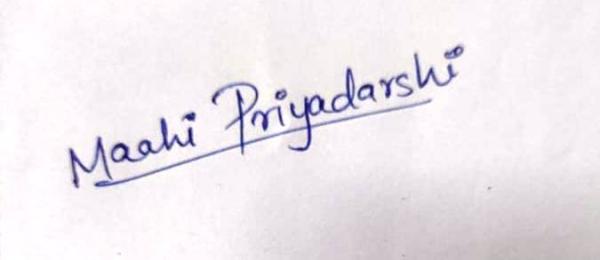 Maahi Priyadarshi